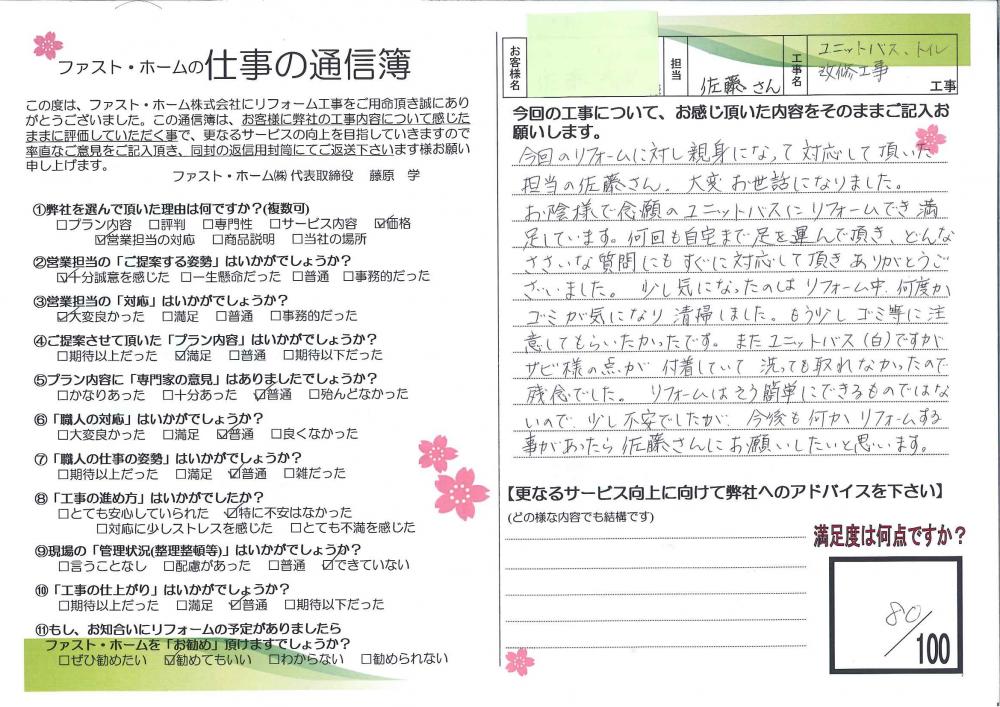 ファスト・ホームの仕事の通信簿
この度は、ファスト・ホーム株式会社にリフォーム工事をご用命頂き誠にあり
がとうございました。この通信簿は、お客様に弊社の工事内容について感じた
ままに評価していただく事で、更なるサービスの向上を目指していきますので
率直なご意見をご記入頂き、同封の返信用封筒にてご返送下さいます様お願い
申し上げます。
ファスト・ホーム㈱ 代表取締役 藤原 学
①弊社を選んで頂いた理由は何ですか？(複数可)
□プラン内容 □評判 □専門性 □サービス内容 ☑価格
☑営業担当の対応 □商品説明 □当社の場所
②営業担当の「ご提案する姿勢」はいかがでしょうか？
☑十分誠意を感じた □一生懸命だった □普通 □事務的だった
③営業担当の「対応」はいかがでしょうか？
☑大変良かった □満足 □普通 □事務的だった
④ご提案させて頂いた「プラン内容」はいかがでしょうか？
□期待以上だった ☑満足 □普通 □期待以下だった
⑤プラン内容に「専門家の意見」はありましたでしょうか？
□かなりあった □十分あった ☑普通 □殆んどなかった
⑥「職人の対応」はいかがでしょうか？
□大変良かった □満足 ☑普通 □良くなかった
⑦「職人の仕事の姿勢」はいかがでしょうか？
□期待以上だった □満足 ☑普通 □雑だった
⑧「工事の進め方」はいかがでしたか？
□とても安心していられた ☑特に不安はなかった
□対応に少しストレスを感じた □とても不満を感じた
⑨現場の「管理状況(整理整頓等)」はいかがでしょうか？
□言うことなし □配慮があった □普通 ☑できていない
⑩「工事の仕上がり」はいかがでしょうか？
□期待以上だった □満足 ☑普通 □期待以下だった
⑪もし、お知合いにリフォームの予定がありましたら
ファスト・ホームを「お勧め」頂けますでしょうか？
□ぜひ勧めたい ☑勧めてもいい □わからない □勧められない
お客様名
担当 佐藤さん
工事名 ユニットバス、トイレ
改修工事 工事
今回の工事について、お感じ頂いた内容をそのままご記入お
願いします。
今回のリフォームに対し親身になって対応して頂いた
担当の佐藤さん。大変お世話になりました。
お陰様で念願のユニットバスにリフォームでき満
足しています。何回も自宅まで足を運んで頂き、どんな
ささいな質問にもすぐに対応して頂きありがとうご
ざいました。 少し気になったのはリフォーム中、何度か
ゴミが気になり清掃しました。もう少しゴミ等に注
意してもらいたかったです。またユニットバス(白)ですが
サビ様の点が付着していて洗っても取れなかったので
残念でした。 リフォームはそう簡単にできるものではな
いので少し不安でしたが、今後も何かリフォームする
事があったら佐藤さんにお願いしたいと思います。
【更なるサービス向上に向けて弊社へのアドバイスを下さい】
(どの様な内容でも結構です)
満足度は何点ですか？
80/100